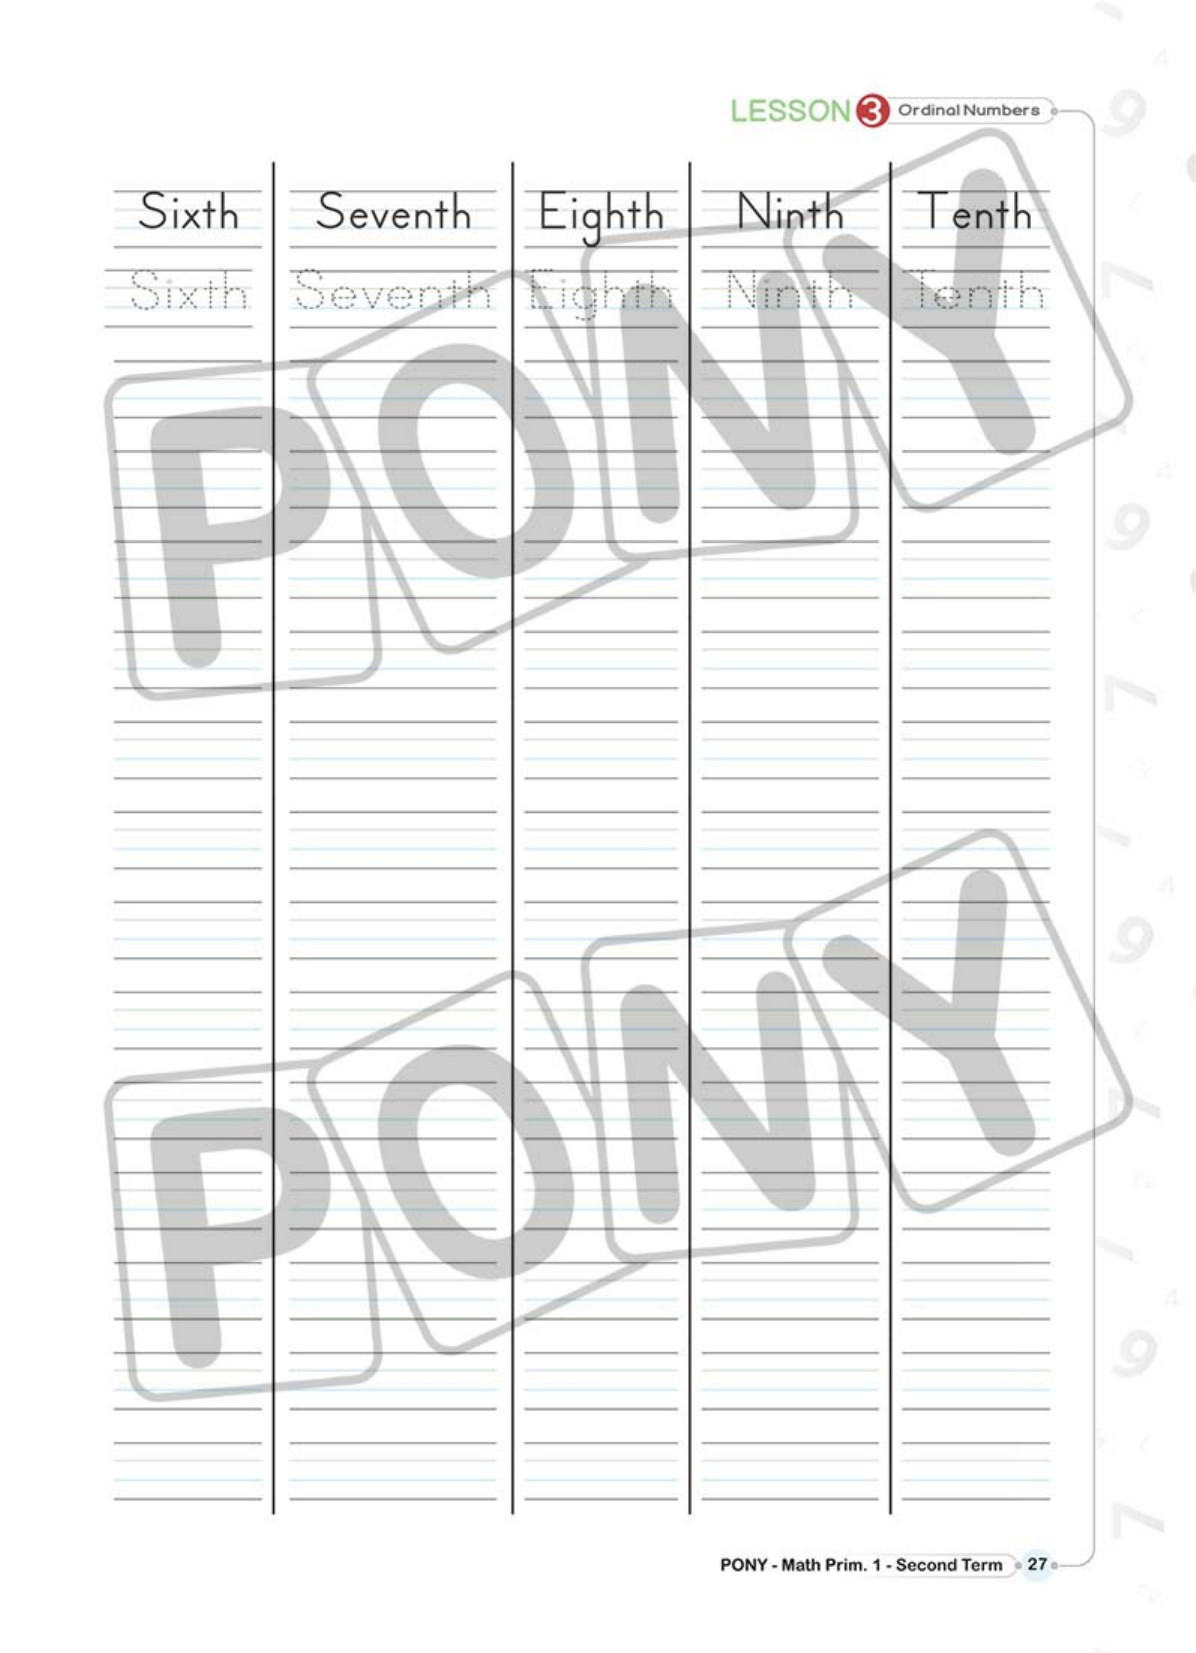 LESSON 3 Ordinal Numbers
Sixth Seventh Eighth Ninth Tenth
Sixth Seventh Eighth Ninth Tenth
PONY
PONY
PONY - Math Prim. 1 - Second Term 27